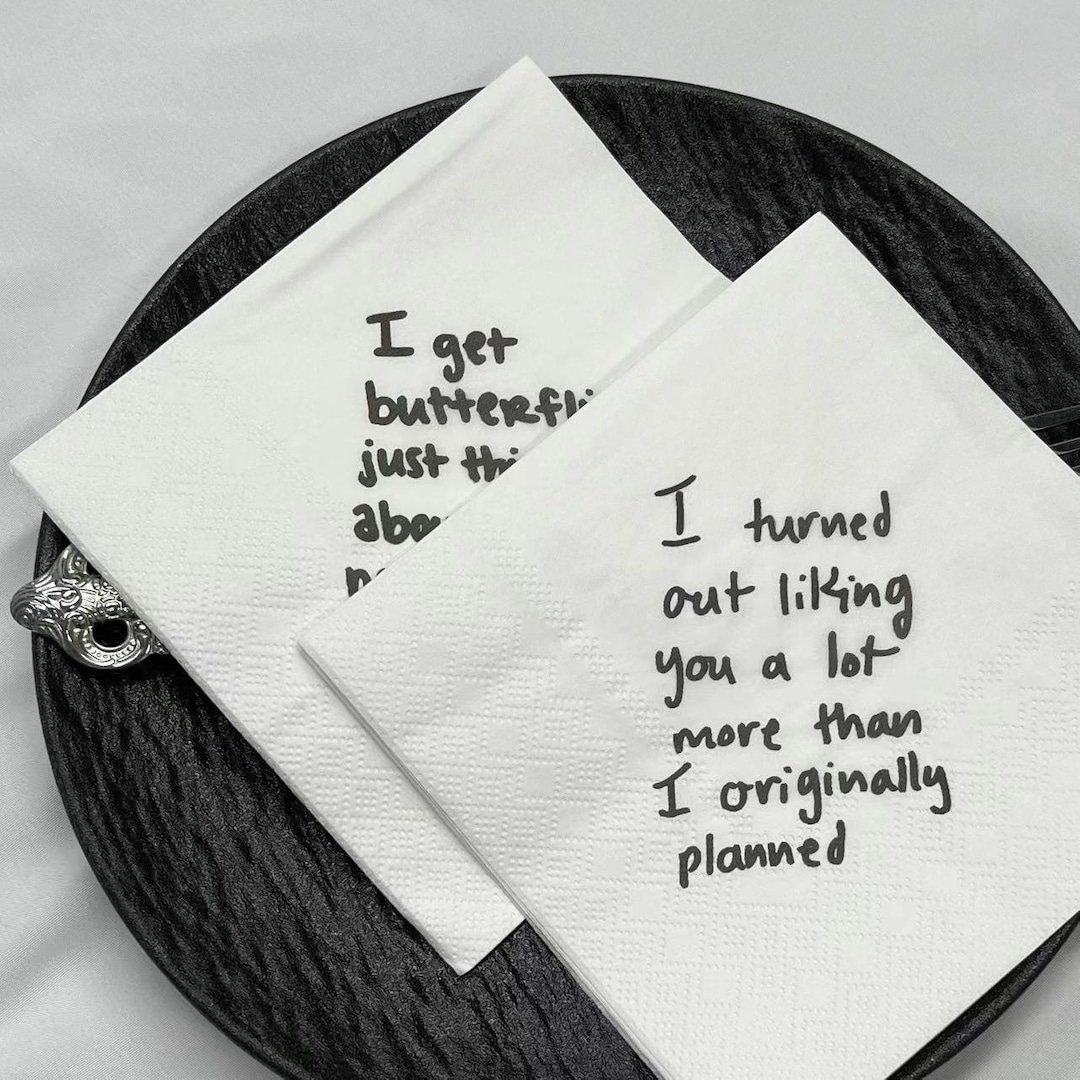 I get
butterfli
just thi
abo
I turned
out liking
you a lot
more than
I originally
planned